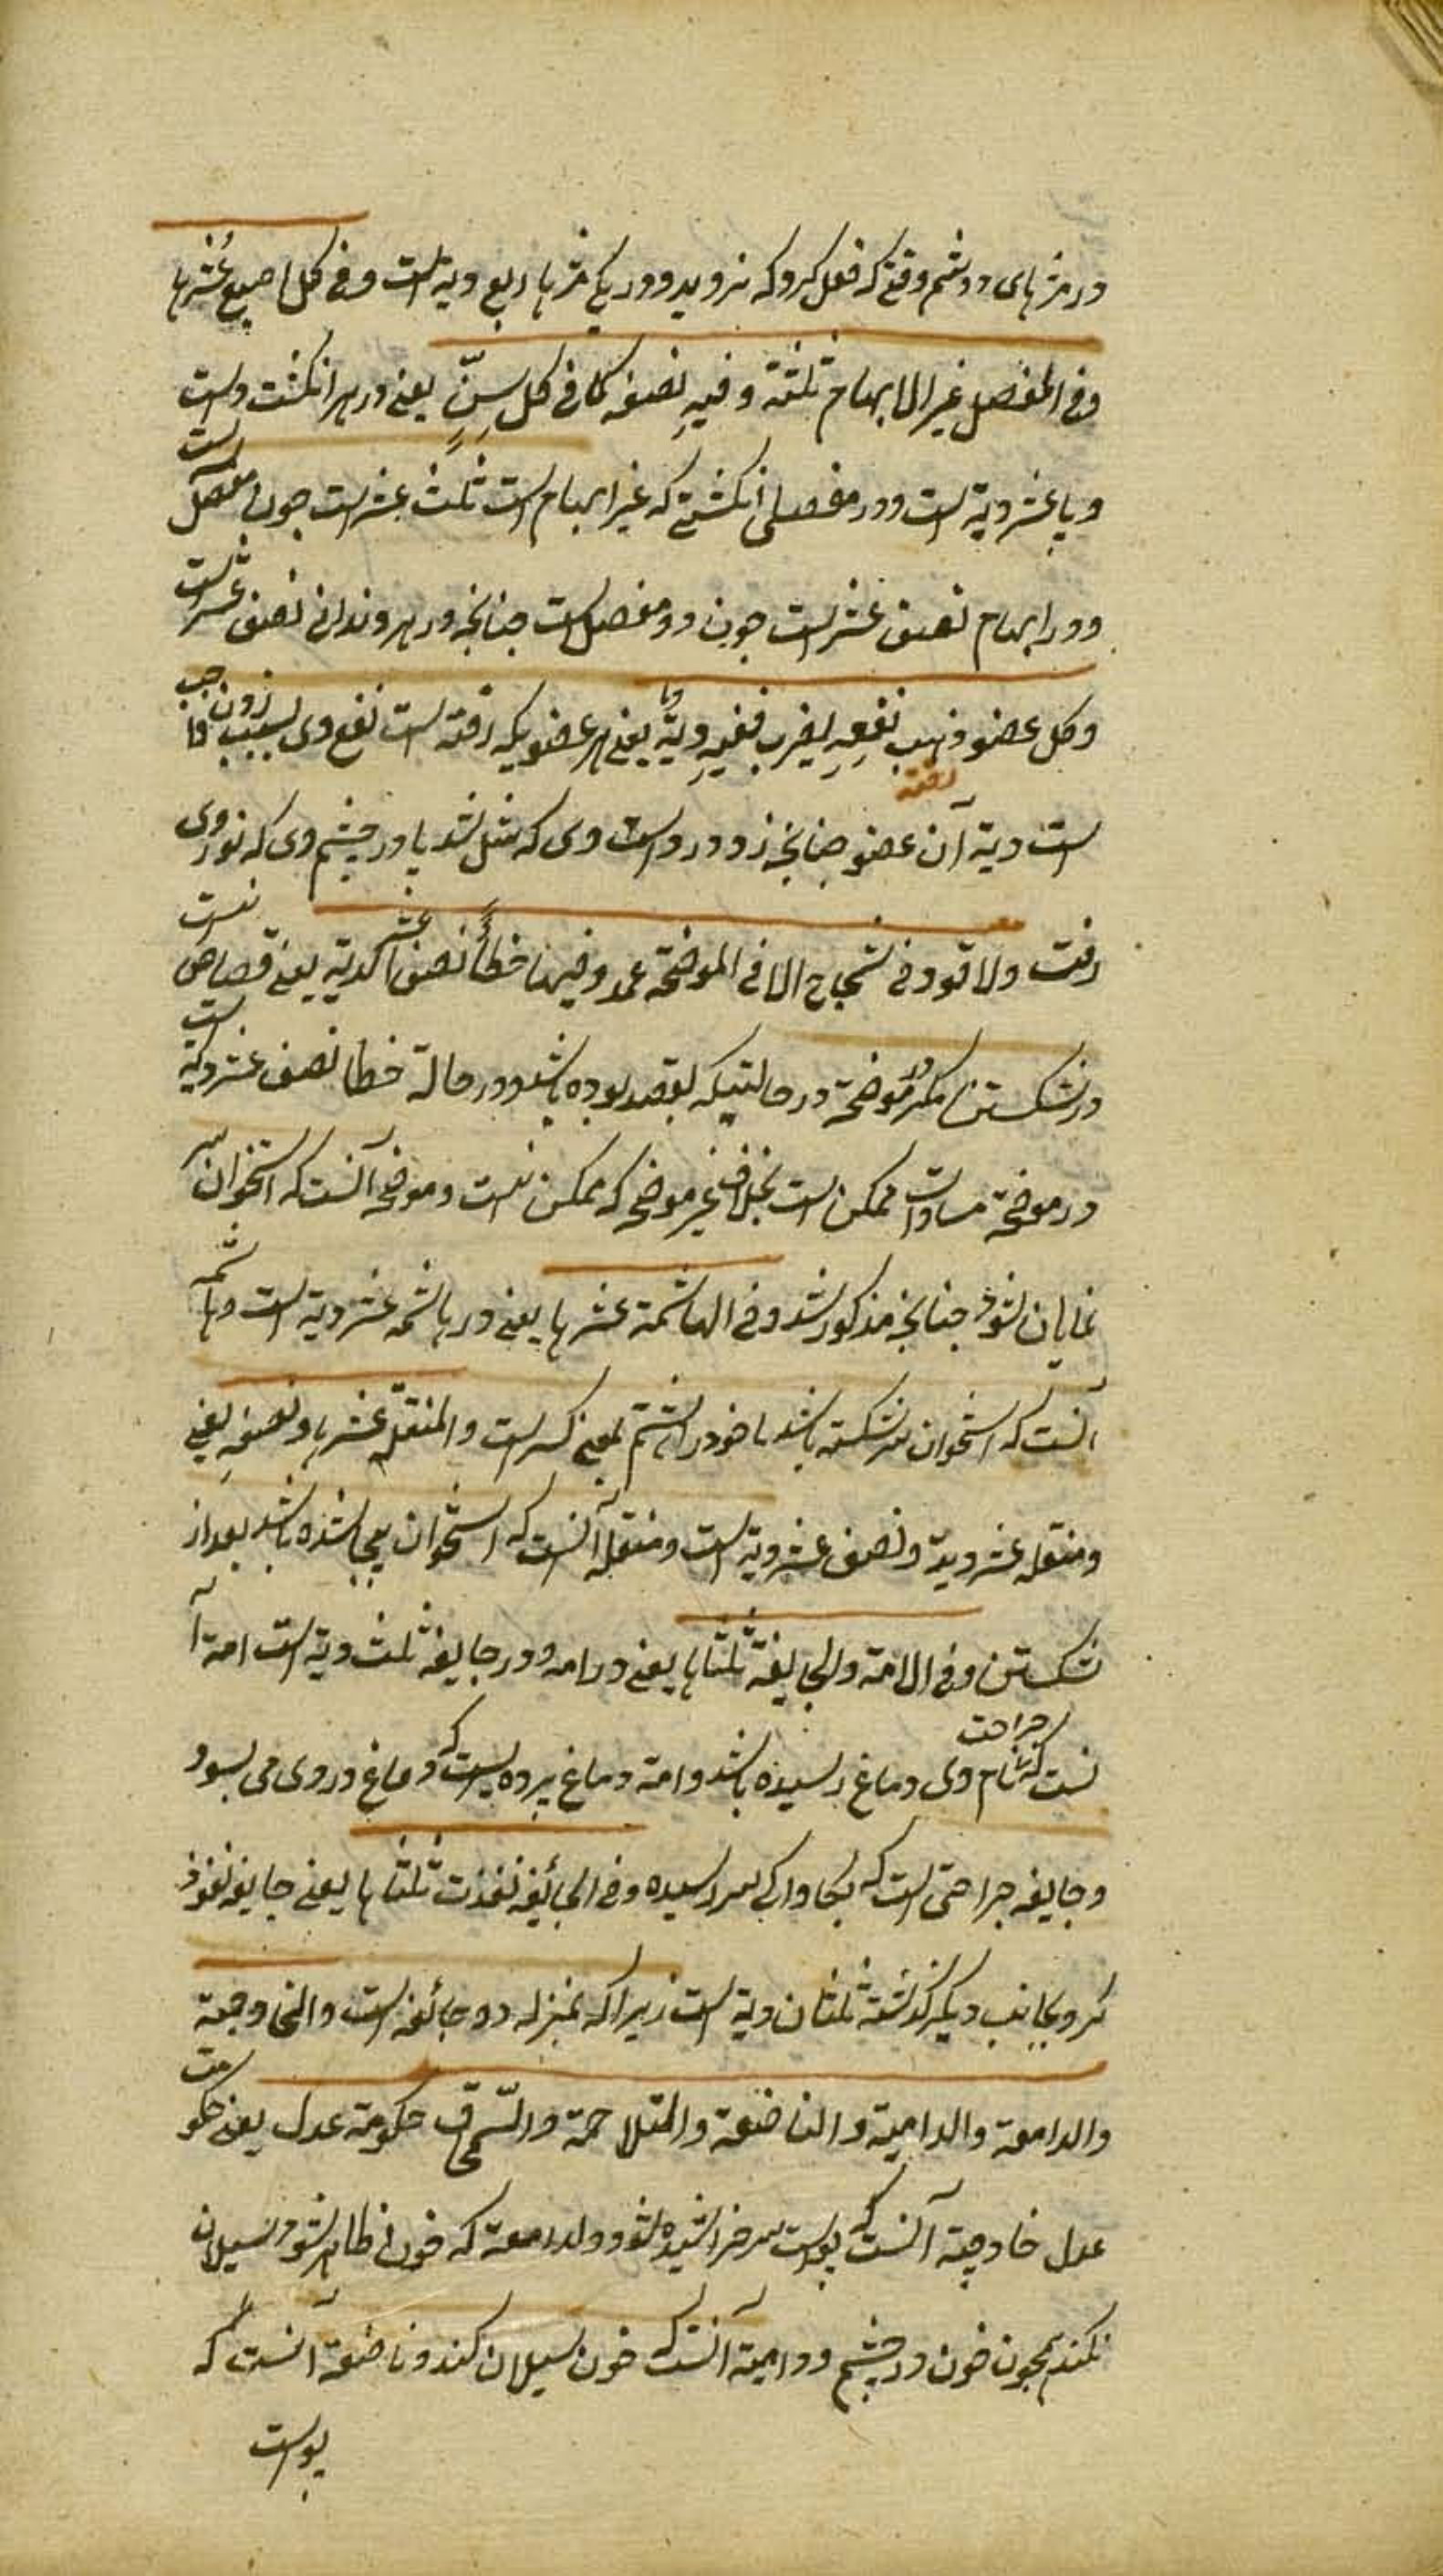 در مژهای دو چشم وقتی که فعل کرد که نروید و در یکی مژها ربع دیة است و فی کل اصبع عُشرها
وفی المفصل غیر الابهام ثلثه وفیهِ نصفه کما فی کل سِنٍّ یعنی در هر انکشت دست
و پا عشر دیة است و در مفصلی انکشتی که غیر ابهام است ثلث عشر است چون مفصل است
و در ابهام نصف عشر است چون دو مفصل است چنانچه در هر دندانی نصف عشر است
وکل عضو ذهب نفعهِ بضرب ففیهِ دیةٌ یعنی هر عضویکه رفته است نفع وی بسبب زدن واجب
است دیة آن عضو چنانچه زد در دست وی که شل شد یا در چشم وی که نور وی
رفت ولا قود فی شجاج الا فی الموضحة عمد وفیها خطأً نصف عشر الدیة یعنی قصاص نیست
در شکستن سر مکر در موضحة در حالتیکه بقصد بوده باشد و در حالة خطا نصف عشر دیة است
در موضحة مساوات ممکن است بخلاف غیر موضحه که ممکن نیست و موضحه آنست که استخوان سر
نمایان شود چنانچه مذکور شد وفی الهاشمة عشرها یعنی در هاشمه عشر دیة است و هاشمه
آنست که استخوان سر شکسته باشد ماخوذ از هشم بمعنی کسر است والمنقله عشرها ونصفهِ یعنی
و منقله عشر دیة و نصف عشر دیة است و منقله آنست که استخوان بیجا شده باشد بعد از
شکستن وفی الامة والجایفة ثلثاها یعنی در امه و در جایفه ثلث دیة است امة آ
نست که جراحت بام وی دماغ رسیده باشد وامة دماغ پرده ایست که دماغ در وی می بود
و جایفه جراحتی است که بکاواکی سر رسیده وفی الجائفه نفذت ثلثاها یعنی جایفه نفوذ
کرد بجانب دیکر کذشته ثلثان دیة است زیرا که بمنزله دو جائفه است والخارصة
والدامعة والدامیة والباضعة والمتلاحمة والسمحاق حکومة عدل یعنی حکومت
عدل خارصة آنست که پوست سر خراشیده شود و دامعة که خون ظاهر شود و سیلان
نکند همچون خون در چشم و دامیة آنست که خون سیلان کند و باضعة آنست که
پوست